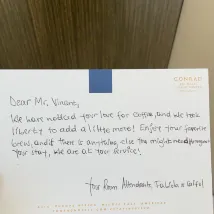 CONRAD
Dear Mr. Vincent,
We have noticed your love for coffee, and we took
liberty to add a little more! Enjoy your favorite
and if there is anything else you might need throughout
your stay, we are at your service!
Your Room Attendants